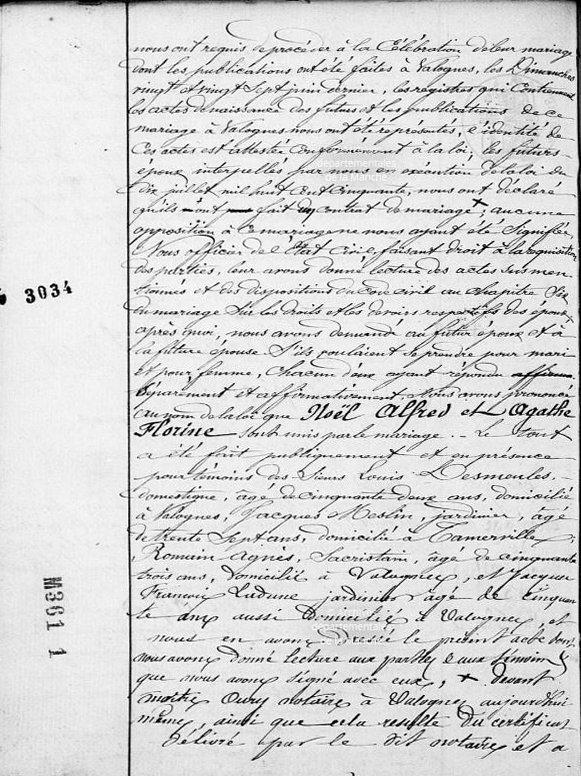 nous ont requis de procéder à la Célébration de leur mariage
dont les publications ont été faites à Valognes, les Dimanches
vingt et vingt Sept juin dernier, les registres qui Contiennent
les actes de naissance des futurs et les publications de ce
mariage à Valognes nous ont été représentés, l'identité de
Ces actes est attestée Conformément à la loi, les futurs
époux interpellés par nous en exécution de la loi du
Dix juillet mil huit Cent Cinquante, nous ont déclaré
qu'ils ont fait un contrat de mariage +, aucune
opposition à ce mariage ne nous ayant été Signifiée,
Nous officier de l'État Civil, faisant droit à la réquisition
des parties, leur avons donné lecture des actes sus men
tionnés et des dispositions du code civil au chapitre Six
du mariage Sur les droits et les devoirs respectifs des époux
après quoi, nous avons demandé au futur époux et à
la future épouse S'ils voulaient se prendre pour mari
et pour femme, chacun d'eux ayant répondu
Séparément et affirmativement Nous avons prononcé
au nom de la loi que Noël Alfred et Agathe
Florine sont unis par le mariage. - Le tout
a été fait publiquement et en présence
pour témoins des Sieurs Louis Desmeules,
domestique, âgé de cinquante deux ans, domicilié
à Valognes, Jacques Meslin, jardinier, âgé
de trente Sept ans, domicilié à Tamerville,
Romain Agnès, Sacristain, âgé de cinquante
trois ans, domicilié à Valognes, et Jacques
François Ludune jardinier âgé de cinquan
te ans aussi Domicilié à Valognes, et
nous en avons Dressé le présent acte dont
nous avons donné lecture aux parties & aux témoins
que nous avons signé avec eux, + devant
maître Oury notaire à Valognes aujourd'hui
même, ainsi que cela résulte du certificat
délivré par le dit notaire et a
3034
M361 1
départementales
de la Manche